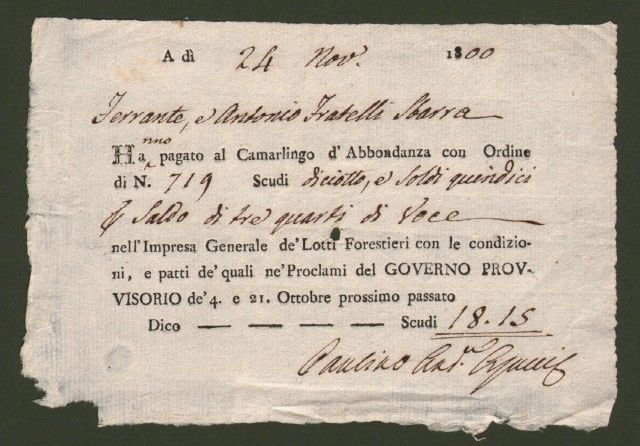 A dì 24 Nov.ᵉ 1800
Ferrante, e Antonio Fratelli Sbarra
Hanno pagato al Camarlingo d'Abbondanza con Ordine
di N. 719 Scudi diciotto, e Soldi quindici
Saldo di tre quarti di Voce
nell'Impresa Generale de' Lotti Forestieri con le condizio-
ni, e patti de' quali ne' Proclami del GOVERNO PROV-
VISORIO de' 4. e 21. Ottobre prossimo passato
Dico — — — — — Scudi 18.15
Paulino Ant.º